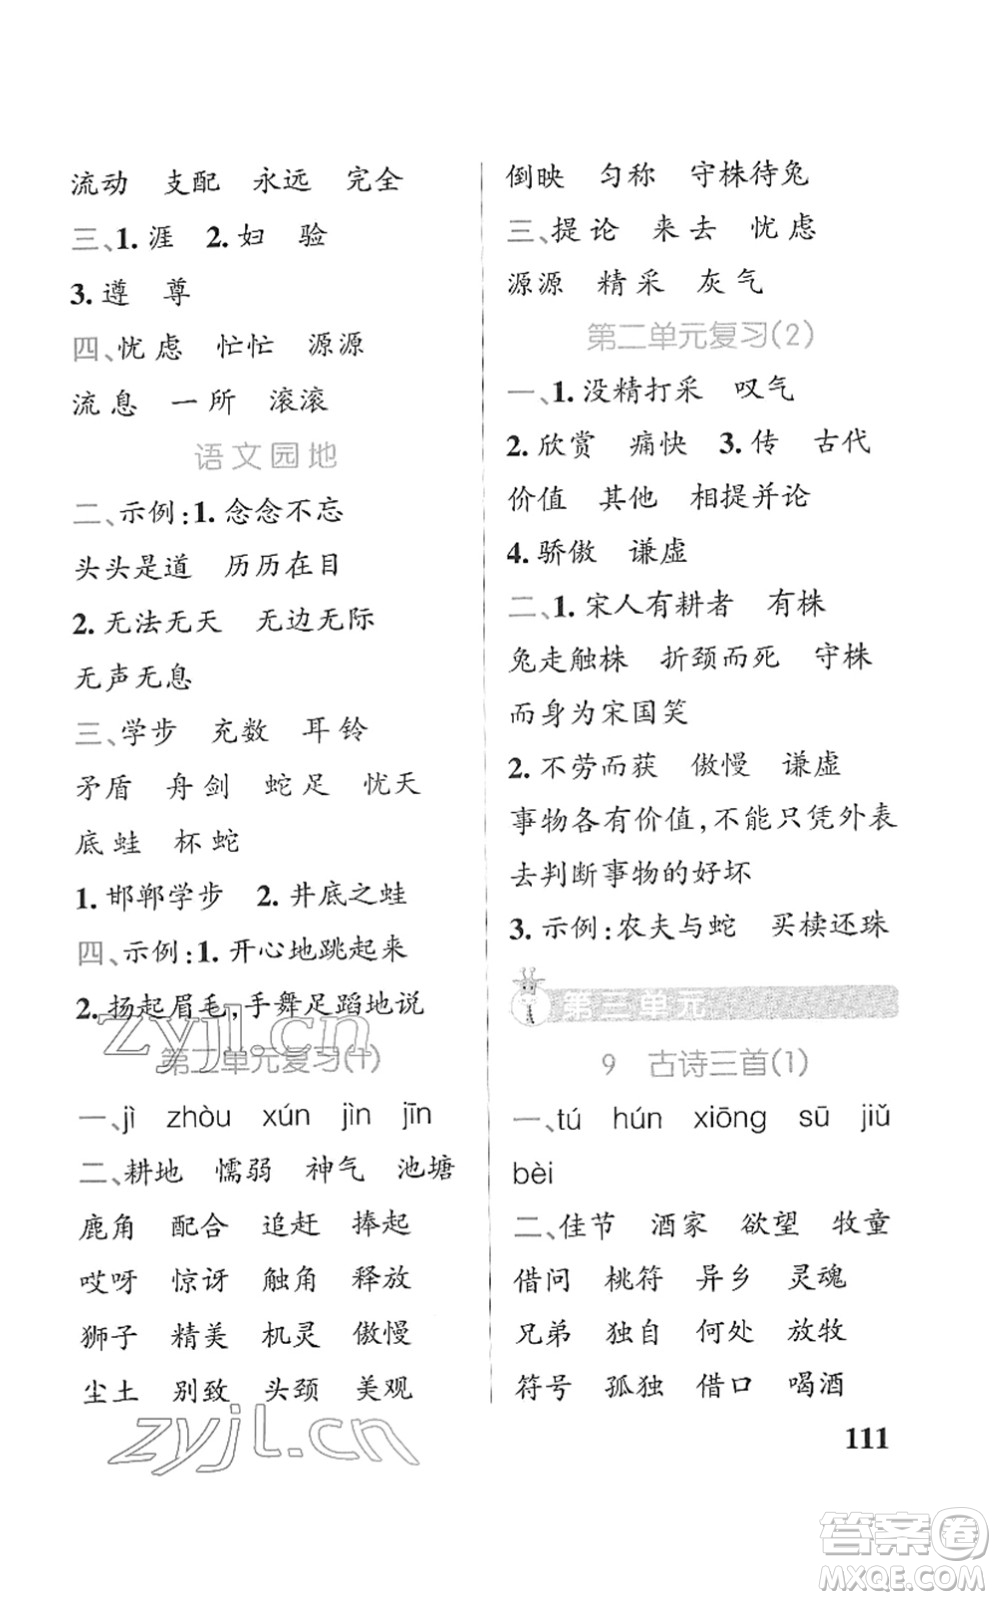 流动 支配 永远 完全
三、1. 涯 2. 妇 验
3. 遵 尊
四、忧虑 忙忙 源源
流息 一所 滚滚
语文园地
二、示例:1. 念念不忘
头头是道 历历在目
2. 无法无天 无边无际
无声无息
三、学步 充数 耳铃
矛盾 舟剑 蛇足 忧天
底蛙 杯蛇
1. 邯郸学步 2. 井底之蛙
四、示例:1. 开心地跳起来
2. 扬起眉毛,手舞足蹈地说
第二单元复习(1)
一、jì zhòu xún jìn jīn
二、耕地 懦弱 神气 池塘
鹿角 配合 追赶 捧起
哎呀 惊讶 触角 释放
狮子 精美 机灵 傲慢
尘土 别致 头颈 美观
倒映 匀称 守株待兔
三、提论 来去 忧虑
源源 精采 灰气
第二单元复习(2)
一、1. 没精打采 叹气
2. 欣赏 痛快 3. 传 古代
价值 其他 相提并论
4. 骄傲 谦虚
二、1. 宋人有耕者 有株
兔走触株 折颈而死 守株
而身为宋国笑
2. 不劳而获 傲慢 谦虚
事物各有价值,不能只凭外表
去判断事物的好坏
3. 示例:农夫与蛇 买椟还珠
第三单元
9 古诗三首(1)
一、tú hún xiōng sū jiǔ
bèi
二、佳节 酒家 欲望 牧童
借问 桃符 异乡 灵魂
兄弟 独自 何处 放牧
符号 孤独 借口 喝酒
111
zyjl.cn
zyjl.cn
答案卷
MXQE.COM